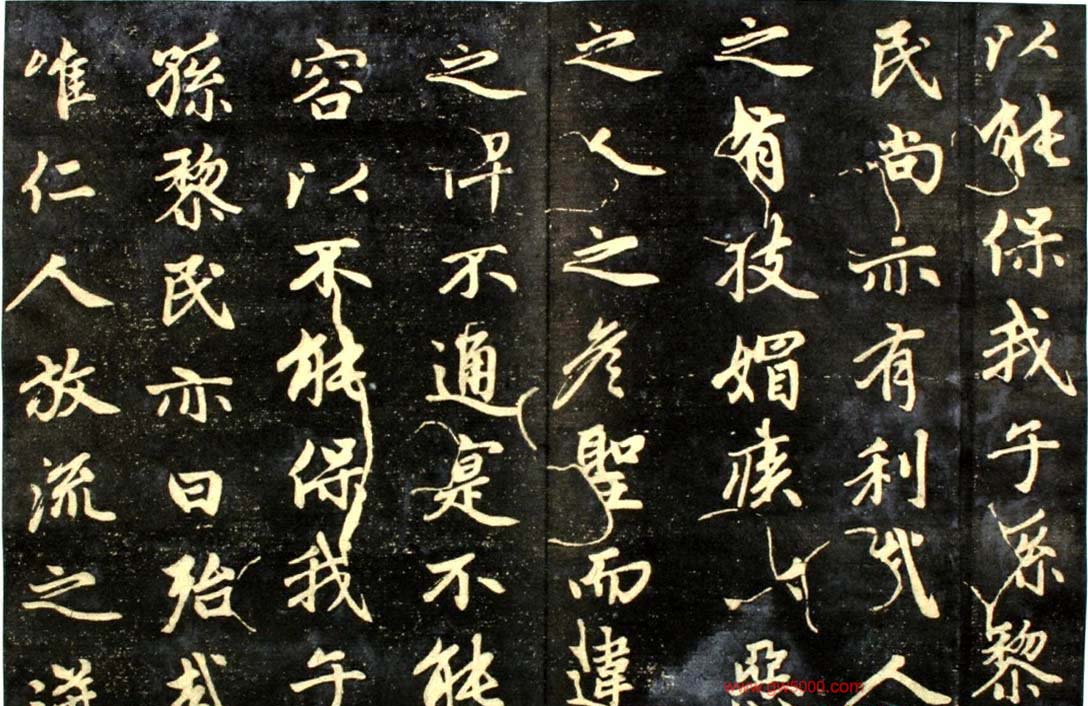 以能保我子孫黎
民尚亦有利哉人
之有技媢疾以惡
之人之彥聖而違
之俾不通寔不能
容以不能保我子
孫黎民亦曰殆哉
唯仁人放流之迸
www.gw5000.com